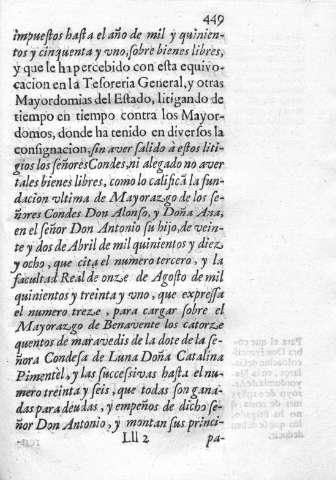 449
impuestos hasta el año de mil y quinien-
tos y cinquenta y vno, sobre bienes libres,
y que le ha percebido con esta equivo-
cacion en la Tesoreria General, y otras
Mayordomias del Estado, litigando de
tiempo en tiempo contra los Mayor-
domos, donde ha tenido en diversos la
consignacion, sin aver salido à estos liti-
gios los señores Condes, ni alegado no aver
tales bienes libres, como lo califica la fun-
dacion vltima de Mayorazgo de los se-
ñores Condes Don Alonso, y Doña Ana,
en el señor Don Antonio su hijo, de vein-
te y dos de Abril de mil quinientos y diez
y ocho, que cita el numero tercero, y la
facultad Real de onze de Agosto de mil
quinientos y treinta y vno, que expressa
el numero treze, para cargar sobre el
Mayorazgo de Benavente los catorze
quentos de maravedis de la dote de la se-
ñora Condesa de Luna Doña Catalina
Pimentèl, y las successivas hasta el nu-
mero treinta y seis, que todas son gana-
das para deudas, y empeños de dicho se-
ñor Don Antonio, y montan sus princi-
Lll 2 pa-